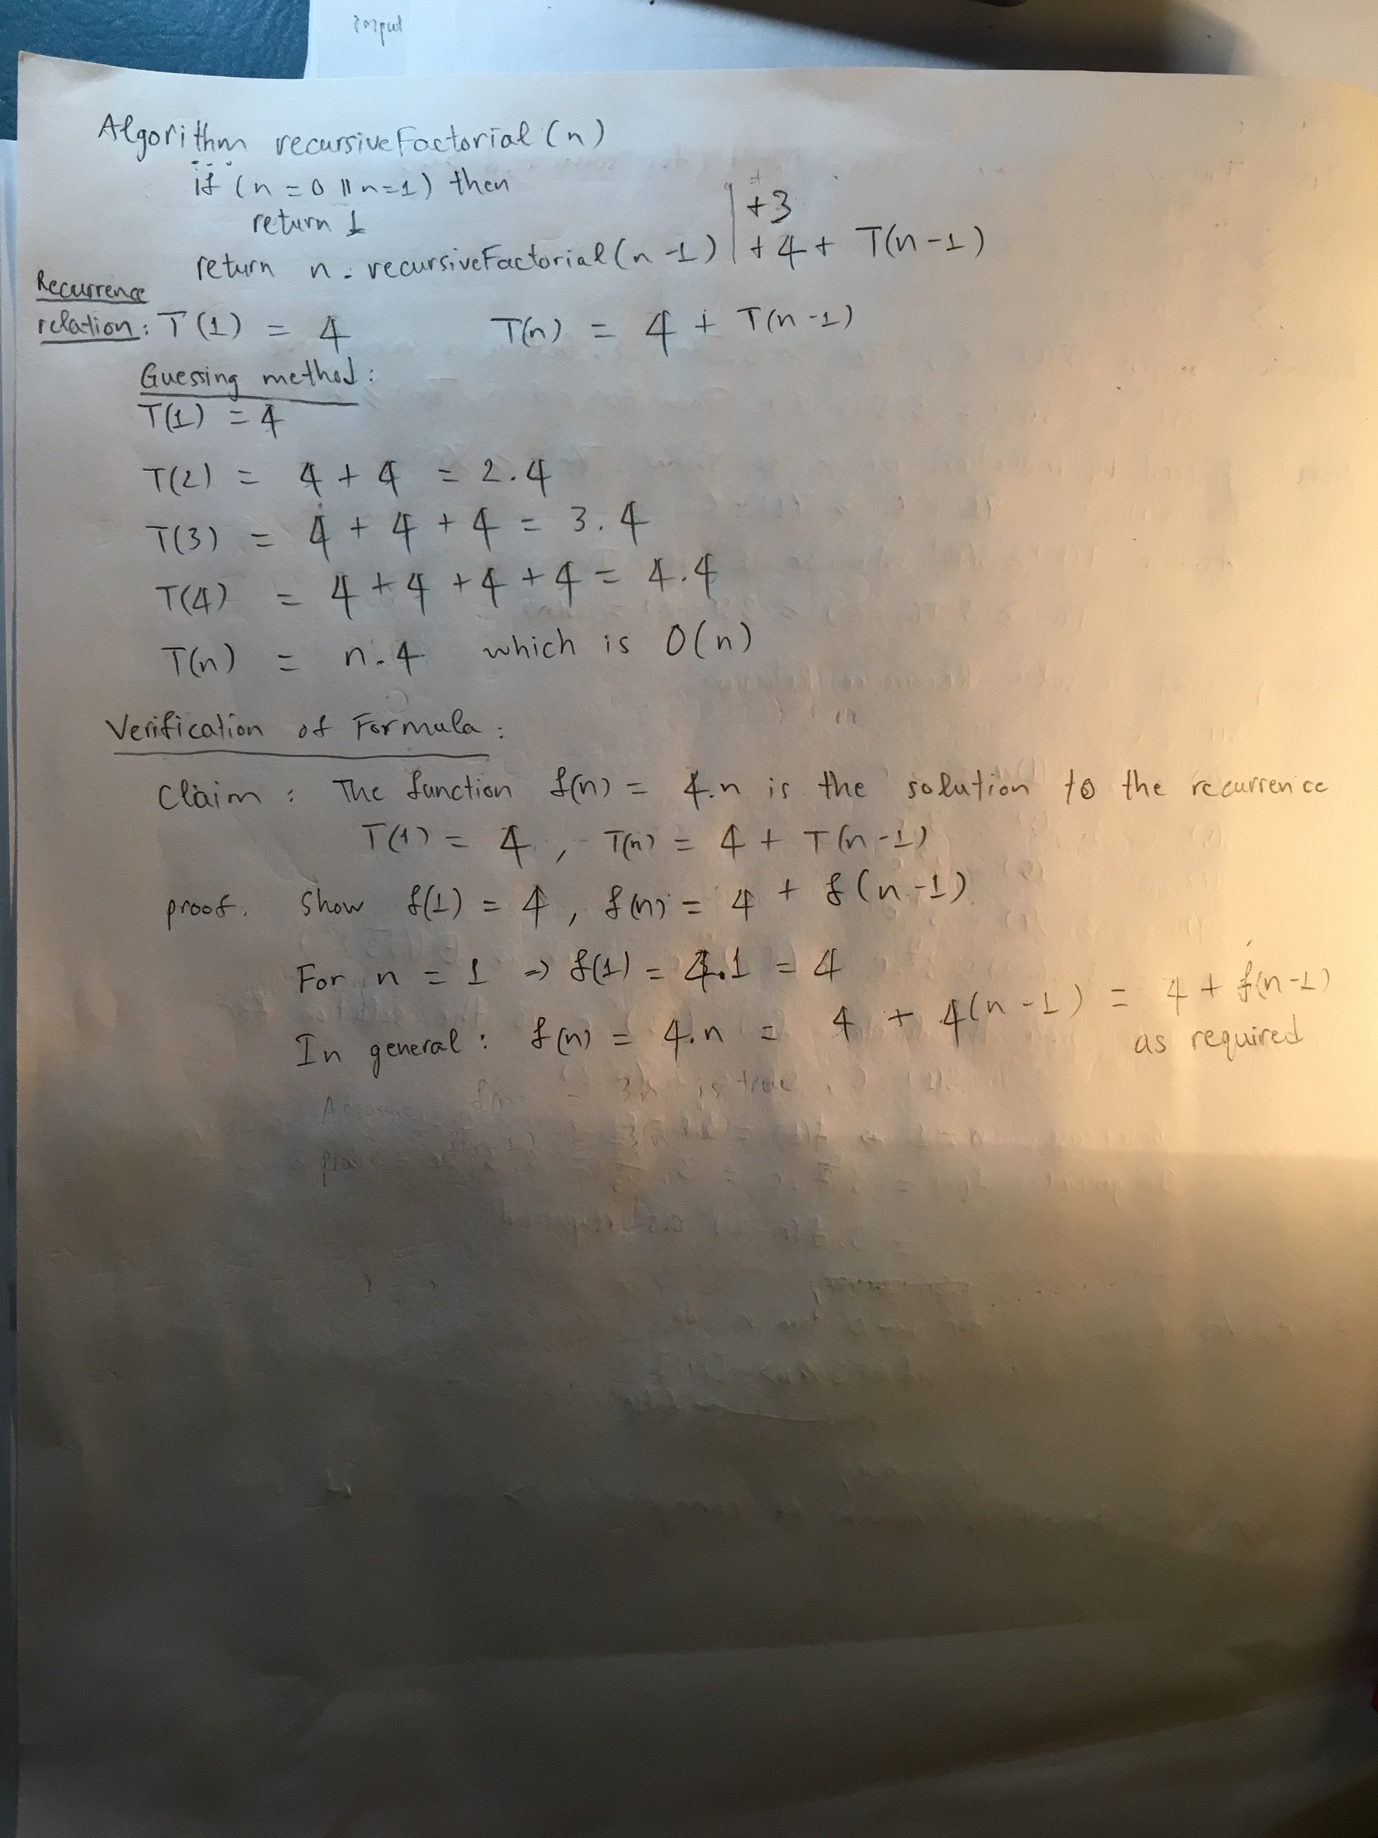 Algorithm recursiveFactorial (n)
if (n = 0 || n = 1) then
return 1 +3
return n . recursiveFactorial (n - 1) + 4 + T(n - 1)
Recurrence
relation: T(1) = 4 T(n) = 4 + T(n - 1)
Guessing method:
T(1) = 4
T(2) = 4 + 4 = 2.4
T(3) = 4 + 4 + 4 = 3.4
T(4) = 4 + 4 + 4 + 4 = 4.4
T(n) = n.4 which is O(n)
Verification of Formula:
Claim: The function f(n) = 4.n is the solution to the recurrence
T(1) = 4, T(n) = 4 + T(n - 1)
proof. Show f(1) = 4, f(n) = 4 + f(n - 1)
For n = 1 ⇒ f(1) = 4.1 = 4
In general: f(n) = 4.n = 4 + 4(n - 1) = 4 + f(n - 1)
as required